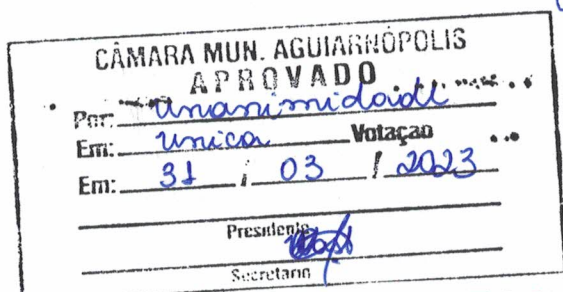 CÂMARA MUN. AGUIARNÓPOLIS
APROVADO
Por: Unanimidade
Em: Unica Votação
Em: 31 / 03 / 2023
Presidente
Secretario